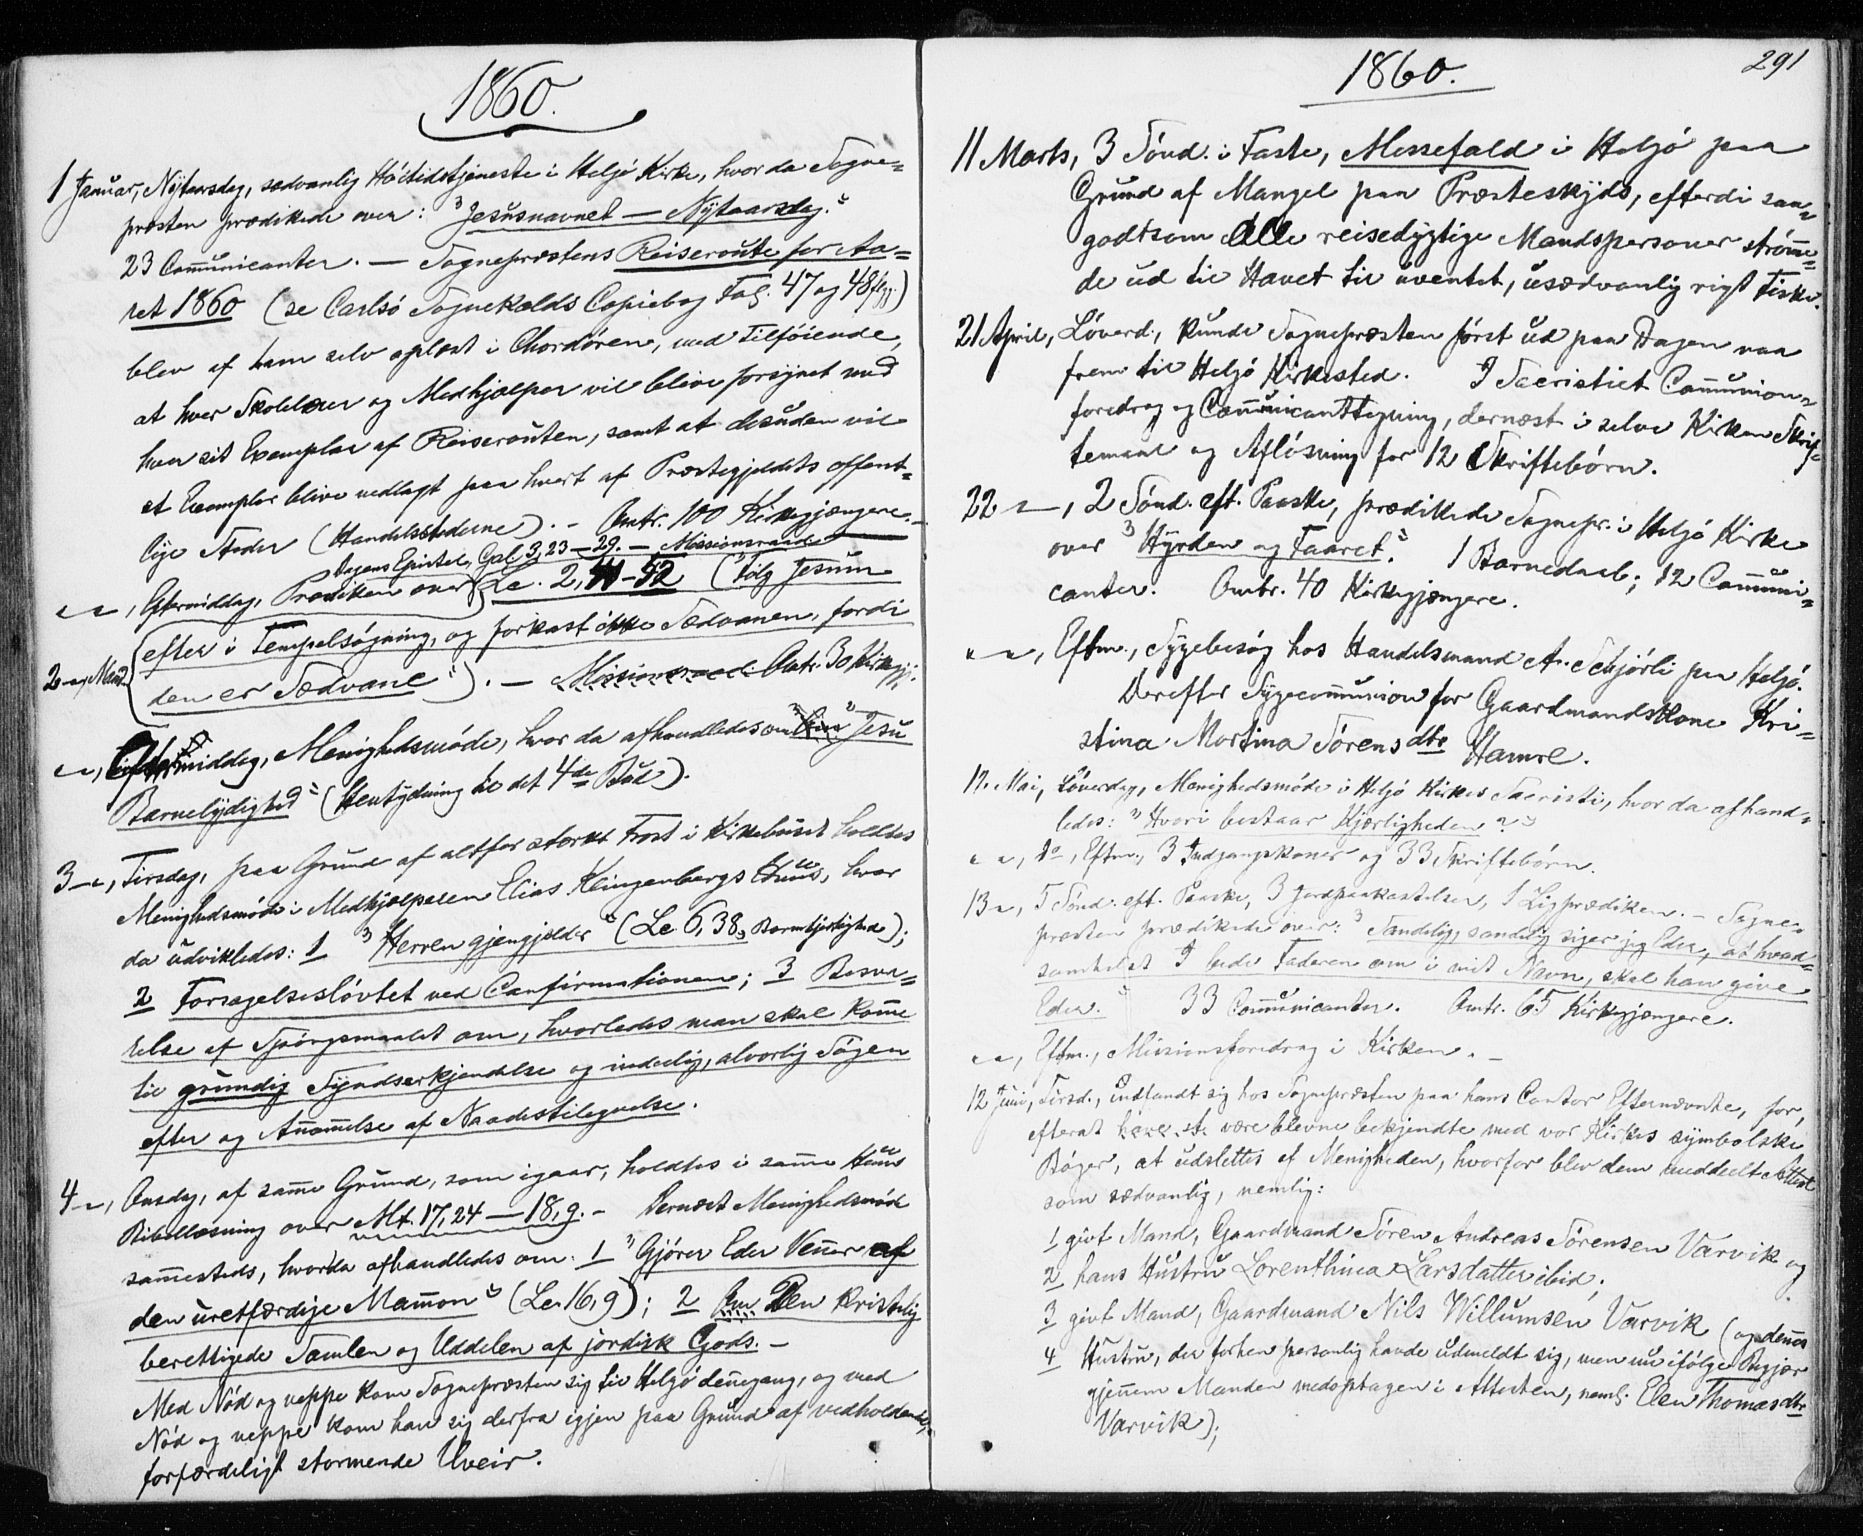 1860.
1 Januar, Nytaarsdag, sædvanlig Høitidstjeneste i Heljø Kirke, hvor da Sogne=
præsten prædikede over: "Jesusnavnet — Nytaarsdag."
23 Communicanter. — Sognepræstens Reiseroute for Aa=
ret 1860 (se Carlsø Sognekalds Copiebog Fol. 47 og 48 flgg.)
blev af ham selv oplæst i Chordøren, med Tilføiende,
at hver Skolelærer og Medhjælper vil blive forsynet med
hver sit Exemplar af Reiserouten, samt at desuden vil
et Exemplar blive vedlagt paa hvert af Præstegjeldets offent=
lige Steder (Handelsstederne). — Omtr. 100 Kirkegjængere. —
Dagens Epistel, Gal. 3, 23—29. — Missionsraad
" —", Eftermiddag, Prædiken over Lc. 2, 41–52 ("Følg Jesum
efter i Tempelsøgning, og forkast ikke Sædvanen, fordi
2 —", Mand. den er Sædvane"). — Missionsraad. Omtr. 30 Kirkegj.
" —", Eftermiddag, Menighedsmøde, hvor da afhandledes om "Jesu
Barnelydighed" (Hentydning til det 4de Bud).
3 —", Tirsdag, paa Grund af altfor stærk Frost i Kirkehuset holdtes
Menighedsmøde i Medhjælperen Elias Klingenbergs Huus, hvor
da udvikledes: 1 "Herren gjengjelder" (Lc. 6, 38, Barmhjertighed);
2 Forsagelsesløvtet ved Confirmationen; 3 Besva=
relse af Spørgsmaalet om, hvorledes man skal komme
til grundig Syndserkjendelse og inderlig, alvorlig Søgen
efter og Anammelse af Naadestilegnelse.
4 —", Onsdag, af samme Grund, som igaar, holdtes i samme Huus
Bibellæsning over Mt. 17, 24 — 18, 9. — Dernæst Menighedsmøde
sammesteds, hvorda afhandledes om: 1 "Gjører Eder Venner af
den uretfærdige Mammon" (Lc. 16, 9); 2 Om Den kristelig
berettigede Samlen og Uddelen af jordisk Gods. —
Med Nød og neppe kom Sognepræsten sig til Heljø dennegang, og med
Nød og neppe kom han sig derfra igjen paa Grund af vedholdende,
forfærdeligt stormende Uveir.
1860.
291
11 Marts, 3 Sønd. i Faste, Messefald i Heljø paa
Grund af Mangel paa Præsteskyds, efterdi saa=
godtsom alle reisedygtige Mandspersoner strømme=
de ud til Havet til uventet, usædvanlig rigt Fiske.
21 April, Løverd., kunde Sognepræsten først ud paa Dagen naa
frem til Heljø Kirkested. I Sacristiet Communion=
foredrag og Communicanttegning, dernæst i selve Kirken Skrif=
temaal og Afløsning for 12 Skriftebørn.
22 —", 2 Sønd. eft. Paaske, prædikede Sognepr. i Heljø Kirke
over "Hyrden og Faaret". 1 Barnedaab; 12 Communi=
canter. Omtr. 40 Kirkegjængere.
" —", Eftm., Sygebesøg hos Handelsmand A. Schjørli paa Heljø.
Derefter Sygecommunion for Gaardmandskone Kri=
stina Martina Sørensdtr Hamre.
12. Mai, Løverdag, Menighedsmøde i Heljø Kirkes Sacristi, hvor da afhand=
ledes: "Hvori bestaar Kjærligheden?"
" —", Do, Eftm., 3 Indgangskoner og 33 Skriftebørn.
13 —", 5 Sønd. eft. Paaske, 3 Jordpaakastelser, 1 Ligprædiken. — Sogne=
præsten prædikede over: "Sandelig, sandelig siger jeg Eder, at hvad=
somhelst I bede Faderen om i mit Navn, skal han give
Eder." 33 Communicanter. Omtr. 65 Kirkegjængere.
" —", Eftm., Missionsforedrag i Kirken. —
12 Juni, Tirsd., indfandt sig hos Sognepræsten paa hans Contor Efternævnte, for,
efterat have at være blevne bekjendte med vor Kirkes symbolske
Bøger, at udslettes af Menigheden, hvorfor blev dem meddeelt Attest
som sædvanlig, nemlig:
1 givt Mand, Gaardmand Søren Andreas Sørensen Varvik og
2 hans Hustru Lorenthina Larsdatter ibid.;
3 givt Mand, Gaardmand Nils Willumsen Varvik (og dennes
4 Hustru, der forhen personlig havde udmeldt sig, men nu ifølge Begjær
gjennem Manden medoptagen i Attesten, neml. Elen Thomasdtr
Varvik);